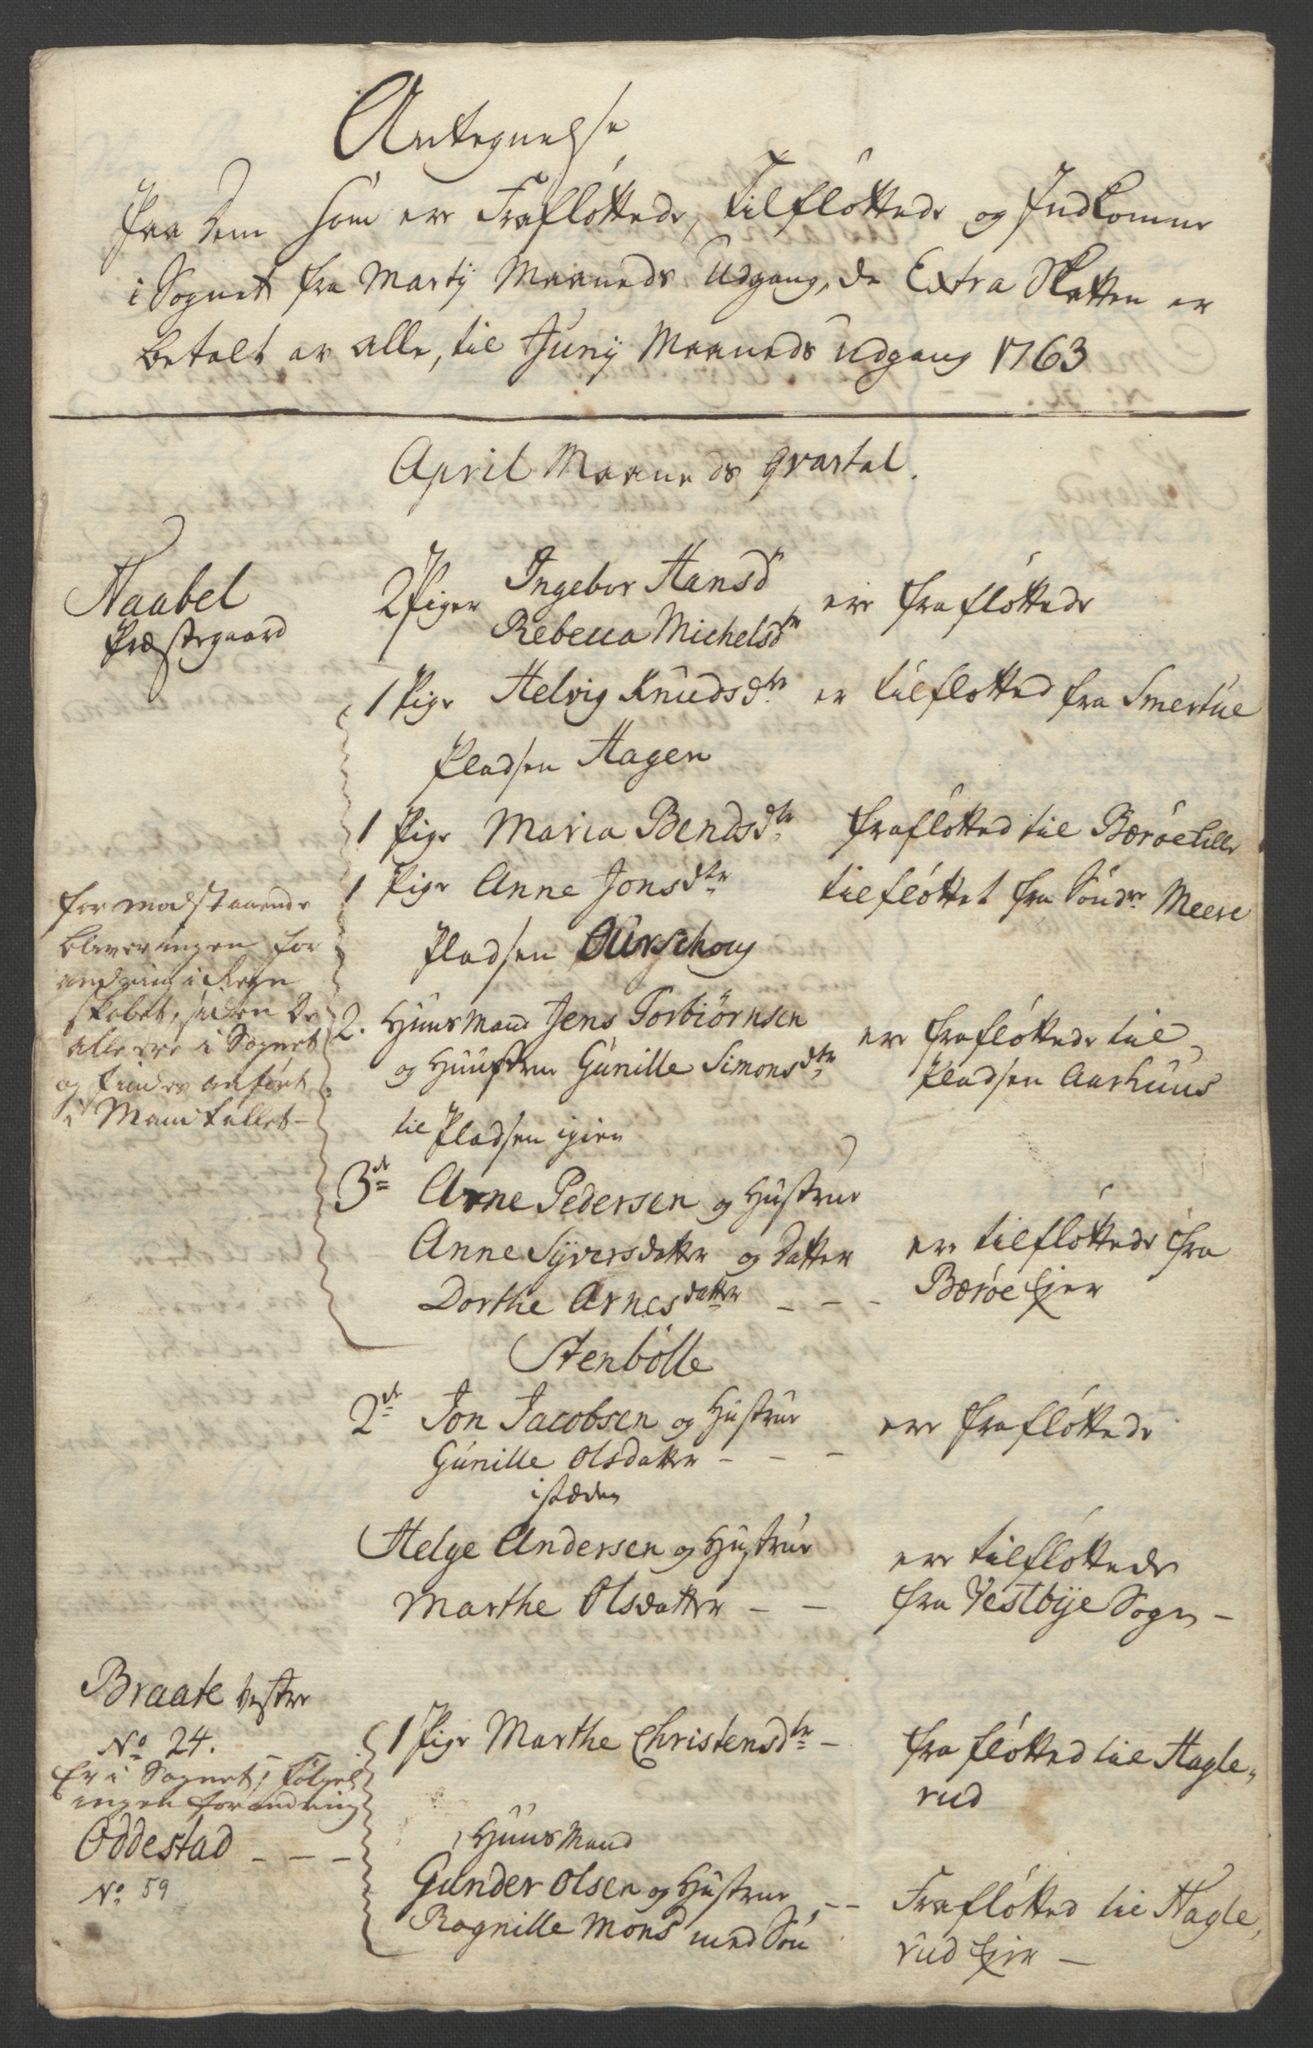 Antegnelse
Paa dem som ere Frafløttede, Tilfløttede og Indkomne
i Sognet fra Martij Maaneds Udgang, da Extra Skatten er
betalt av alle, til Junij Maaneds Udgang 1763
April Maaneds Qvartal.
Naabel
Præstegaard
2 Piger Ingebor Hansdr
Rebecca Michelsdtr
ere fraflöttede
1 Pige Helvig Knudsdtr er tilflötted fra Smertue
Pladsen Hagen
1 Pige Maria Bendsdtr fraflötted til Bærøe Lille
1 Pige Anne Jonsdtr tilflöttet fra Söndr Meere
Pladsen Ourschoug
for modstaaende
bliver ingen for
andring i Regn
skabet, siden De
alle ere i Sognet
og findes anført
i Mandtallet -
2. Huusmand Jens Torbiörnsen
og Huustrue Gunille Simonsdtr
ere fraflöttede til
Pladsen Aarhuus
til Pladsen igien
3de Arne Pedersen og Hustrue
Anne Syversdatter og Datter
Dorthe Arnesdatter - - -
ere tilflöttede fra
Bærøe Ejer
Stenbölle
2de Jon Jacobsen og Hustrue
Gunille Olsdatter - - -
ere fraflöttede
isteden
Helge Andersen og Hustrue
Marthe Olsdatter - -
ere tilflöttede
fra Vestbye Sogn -
Braate Vestre
No 24.
1 Pige Marthe Christensdtr -
fraflötted til Hagle-
rud
Er i Sognet, fölgel.
ingen forandring
Oddestad - - -
No 59
1 Huusmand
Gunder Olsen og Hustrue - -
Ragnille Mons med Sön
Fraflötted til Hagle-
rud Ejer -